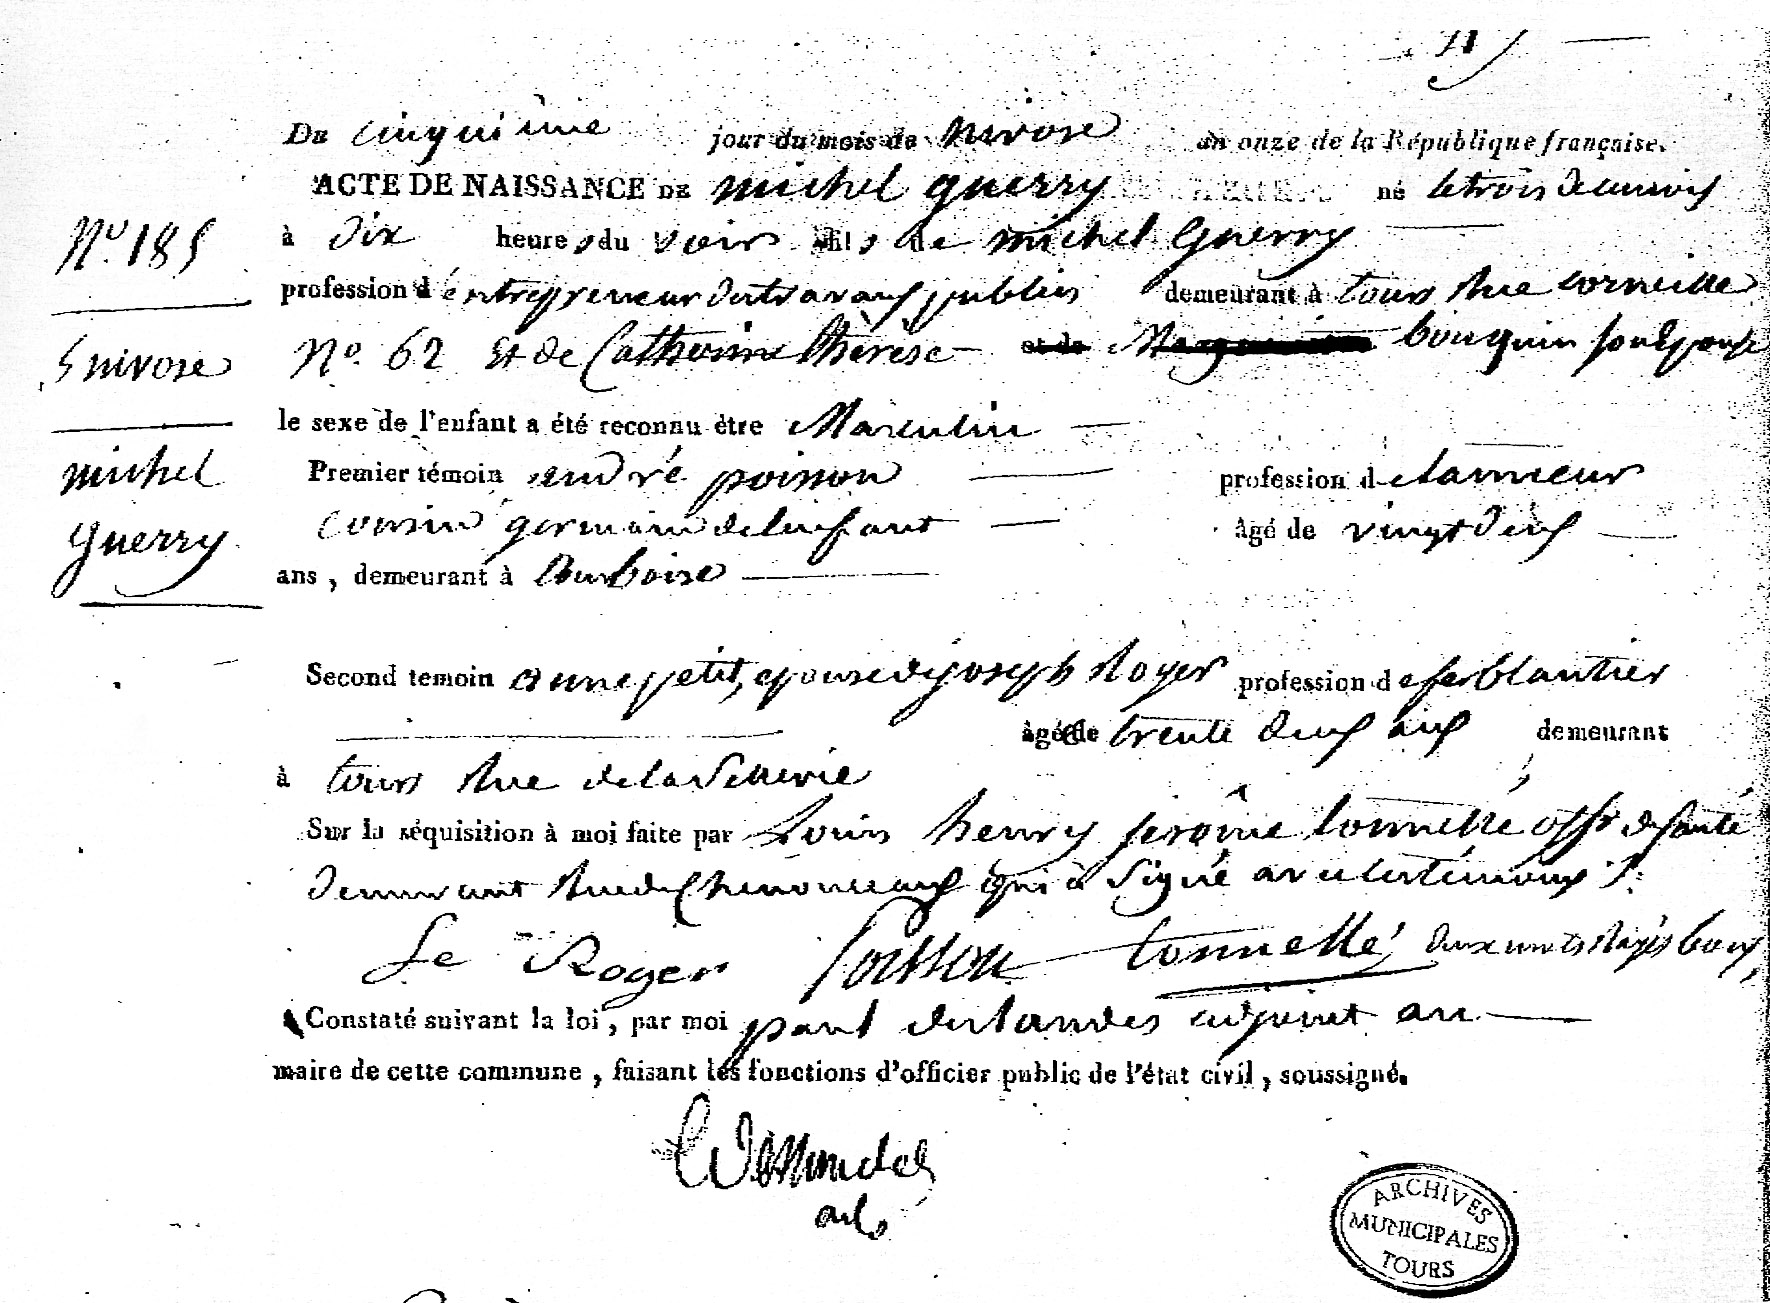 Du cinquième jour du mois de nivose an onze de la République française.
ACTE DE NAISSANCE DE michel guerry né le trois de ce mois
N.o 185
à dix heures du soir fils de michel Guerry
profession d'entrepreneur des travaux publics demeurant à tours Rue corneille
5 nivose
No. 62 Et de Catherine thérèse et de bouquin son Epouse
le sexe de l'enfant a été reconnu être Masculin
michel
Premier témoin andré poisson profession de tanneur
guerry
cousin germain de l'enfant âgé de vingt deux
ans, demeurant à amboise
Second temoin anne petit, epouse de joseph Royer profession de ferblantier
âgée de trente deux ans demeurant
à tours Rue de la Sellerie
Sur la réquisition à moi faite par Louis henry jérôme tonnellé offr de santé
demeurant Rue de Chenonceaux qui a signé avec les témoins
fe Royer Poisson tonnellé deux mots Rayés bons,
Constaté suivant la loi, par moi paul deslandes adjoint au
maire de cette commune, faisant les fonctions d'officier public de l'état civil, soussigné.
ARCHIVES
MUNICIPALES
TOURS